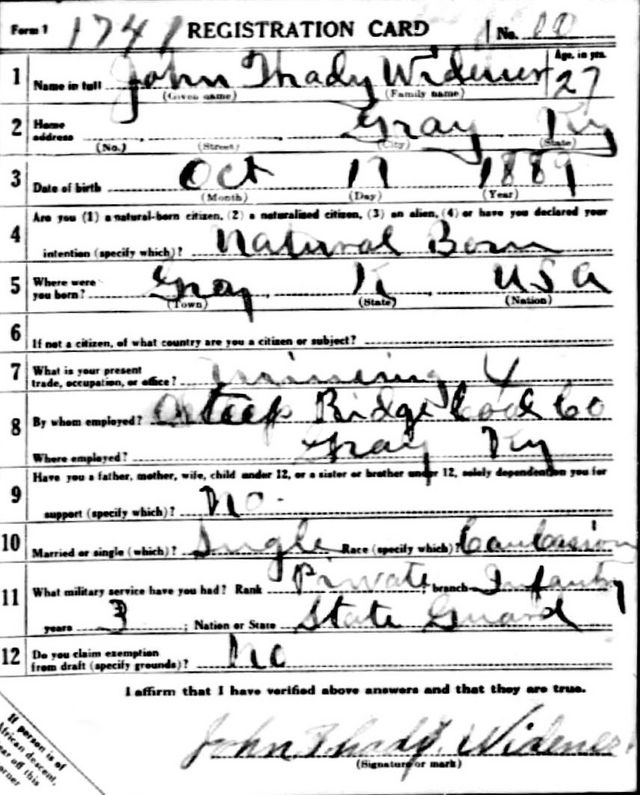 Form 1 1741 REGISTRATION CARD No.
1 Name in full John Thady Widener Age, in yrs. 27
(Given name) (Family name)
2 Home address Gray Ky
(No.) (Street) (City) (State)
3 Date of birth Oct 17 1889
(Month) (Day) (Year)
4 Are you (1) a natural-born citizen, (2) a naturalized citizen, (3) an alien, (4) or have you declared your
intention (specify which)? Natural Born
5 Where were you born? Gray K U S A
(Town) (State) (Nation)
6 If not a citizen, of what country are you a citizen or subject?
7 What is your present trade, occupation, or office? Mining 4
8 By whom employed? Steep Ridge Coal Co
Where employed? Gray Ky
9 Have you a father, mother, wife, child under 12, or a sister or brother under 12, solely dependent on you for
support (specify which)? No.
10 Married or single (which)? Single Race (specify which)? Caucasion
11 What military service have you had? Rank Private; branch Infantry
years 3; Nation or State State Guard
12 Do you claim exemption from draft (specify grounds)? No
I affirm that I have verified above answers and that they are true.
John Thady Widener
(Signature or mark)
If person is of
African descent,
tear off this
corner